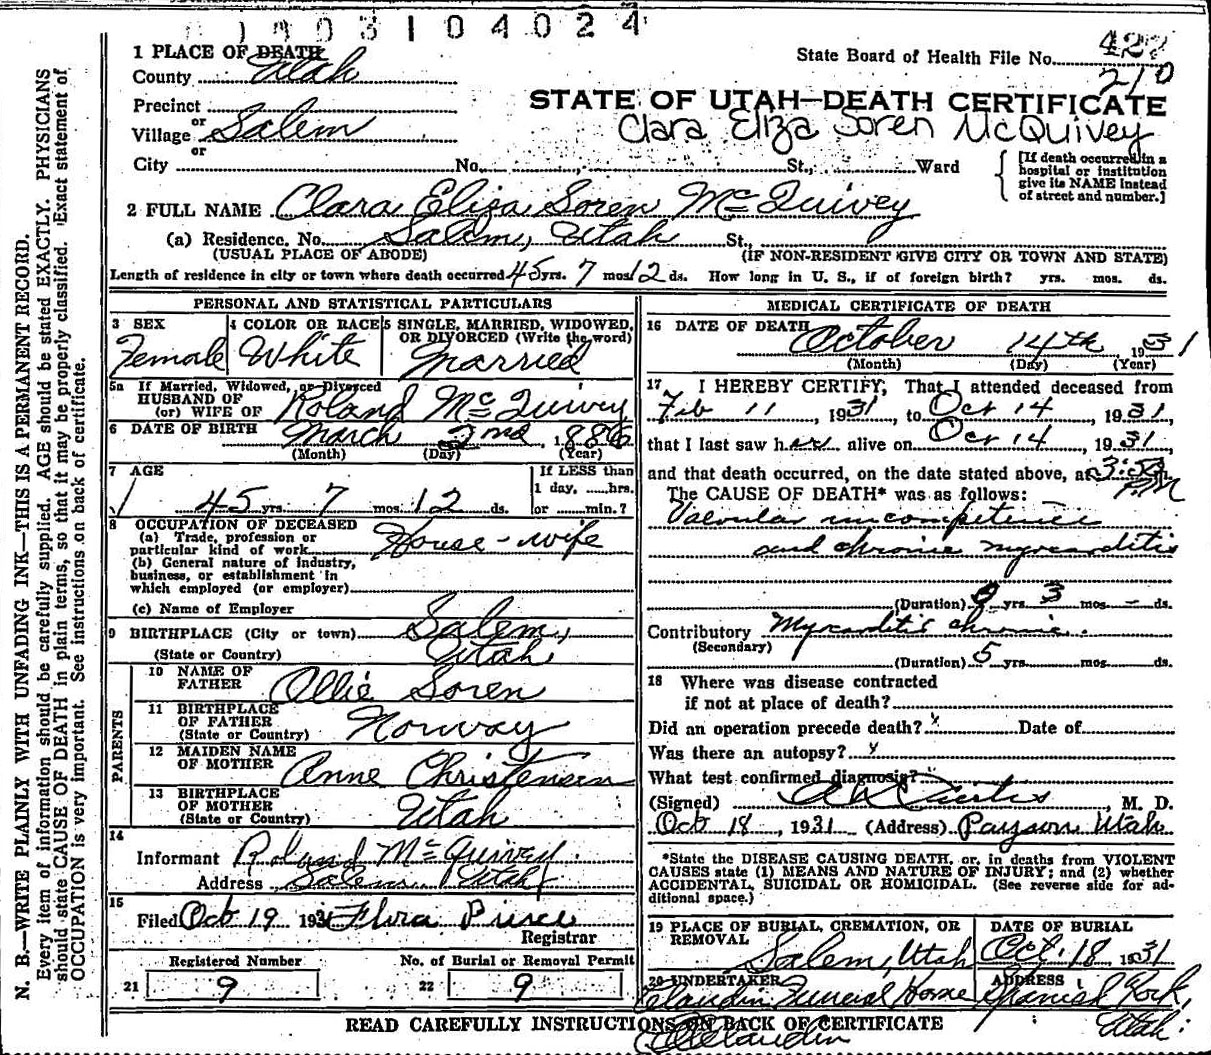 1003104024
1 PLACE OF DEATH
County Utah
State Board of Health File No. 427
210
Precinct
or
Village Salem
or
STATE OF UTAH—DEATH CERTIFICATE
Clara Eliza Soren McQuivey
City No. St., Ward
[If death occurred in a hospital or institution give its NAME instead of street and number.]
2 FULL NAME Clara Eliza Soren McQuivey
(a) Residence. No. Salem, Utah St.,
(USUAL PLACE OF ABODE) (IF NON-RESIDENT GIVE CITY OR TOWN AND STATE)
Length of residence in city or town where death occurred 45 yrs. 7 mos. 12 ds. How long in U. S., if of foreign birth? yrs. mos. ds.
PERSONAL AND STATISTICAL PARTICULARS
3 SEX
Female
4 COLOR OR RACE
White
5 SINGLE, MARRIED, WIDOWED,
OR DIVORCED (Write the word)
Married
5a If Married, Widowed, or Divorced
HUSBAND OF
(or) WIFE OF Roland McQuivey
6 DATE OF BIRTH March 2nd, 1886
(Month) (Day) (Year)
7 AGE
45 yrs. 7 mos. 12 ds.
If LESS than
1 day, hrs.
or min.?
8 OCCUPATION OF DECEASED
(a) Trade, profession or
particular kind of work House-wife
(b) General nature of industry,
business, or establishment in
which employed (or employer)
(c) Name of Employer
9 BIRTHPLACE (City or town) Salem,
(State or Country) Utah
PARENTS
10 NAME OF
FATHER Ollie Soren
11 BIRTHPLACE
OF FATHER Norway
(State or Country)
12 MAIDEN NAME
OF MOTHER Anne Christensen
13 BIRTHPLACE
OF MOTHER Utah
(State or Country)
14
Informant Roland McQuivey
Address Salem Utah
15
Filed Oct 19 1931 Flora Pierce
Registrar
Registered Number No. of Burial or Removal Permit
21 9 22 9
MEDICAL CERTIFICATE OF DEATH
16 DATE OF DEATH October 14th 1931
(Month) (Day) (Year)
17 I HEREBY CERTIFY, That I attended deceased from
Feb 11, 1931, to Oct 14 1931,
that I last saw her alive on Oct 14, 1931,
and that death occurred, on the date stated above, at 3:50 m.
P.M
The CAUSE OF DEATH* was as follows:
Valvular incompetence
and chronic myocarditis
(Duration) yrs. 3 mos. - ds.
Contributory Myocarditis chronic.
(Secondary)
(Duration) 5 yrs. mos. ds.
18 Where was disease contracted
if not at place of death?
Did an operation precede death? x Date of
Was there an autopsy? x
What test confirmed diagnosis?
(Signed) Curtis, M. D.
Oct 18, 1931 (Address) Payson Utah
*State the DISEASE CAUSING DEATH, or, in deaths from VIOLENT
CAUSES state (1) MEANS AND NATURE OF INJURY; and (2) whether
ACCIDENTAL, SUICIDAL OR HOMICIDAL. (See reverse side for ad-
ditional space.)
19 PLACE OF BURIAL, CREMATION, OR
REMOVAL
Salem, Utah
DATE OF BURIAL
Oct. 18, 1931
20 UNDERTAKER
Claudin Funeral Home
ADDRESS
Spanish Fork,
Utah.
READ CAREFULLY INSTRUCTIONS ON BACK OF CERTIFICATE
Claudin
N. B.—WRITE PLAINLY WITH UNFADING INK—THIS IS A PERMANENT RECORD.
Every item of information should be carefully supplied. AGE should be stated EXACTLY. PHYSICIANS
should state CAUSE OF DEATH in plain terms, so that it may be properly classified. Exact statement of
OCCUPATION is very important. See instructions on back of certificate.